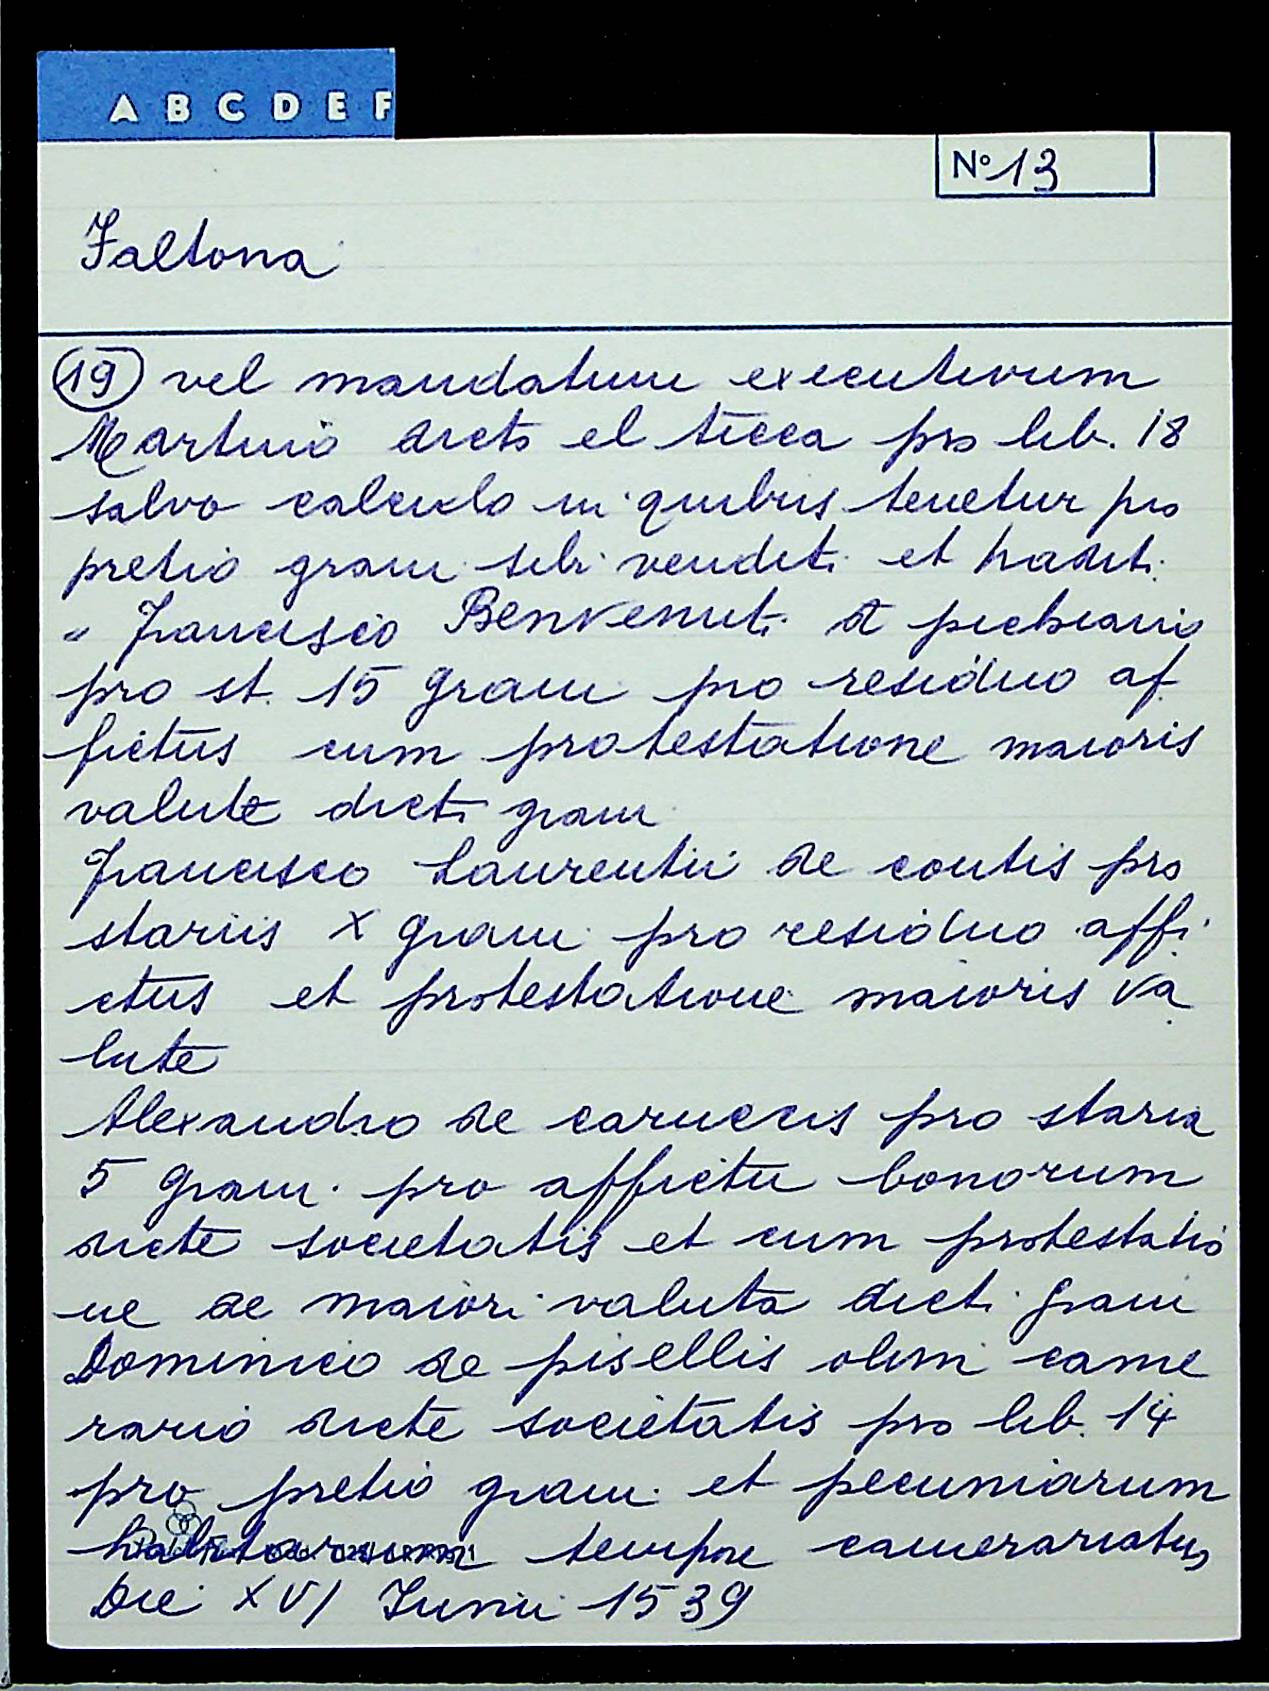 A B C D E F
N° 13
Faltona
19 vel mandatum executivum
Martino dicto el tecca pro lib. 18
salvo calculo in quibus tenetur pro
pretio grani sibi venditi et traditi.
" Francisco Benvenuti
pro st. 15 grani pro residuo af
fictus cum protestatione maioris
valute dicti grani
Francisco Laurentii de contis pro
stariis X grani pro residuo affi
ctus et protestatione maioris va
lute
Alexandro de caruccis pro staria
5 grani pro affictu bonorum
dicte societatis et cum protestatio
ne de maiori valuta dicti grani
Dominico de pisellis olim came
rario dicte societatis pro lib. 14
pro pretio grani et pecuniarum
tempore camerariatus
Die XVI Junii 1539